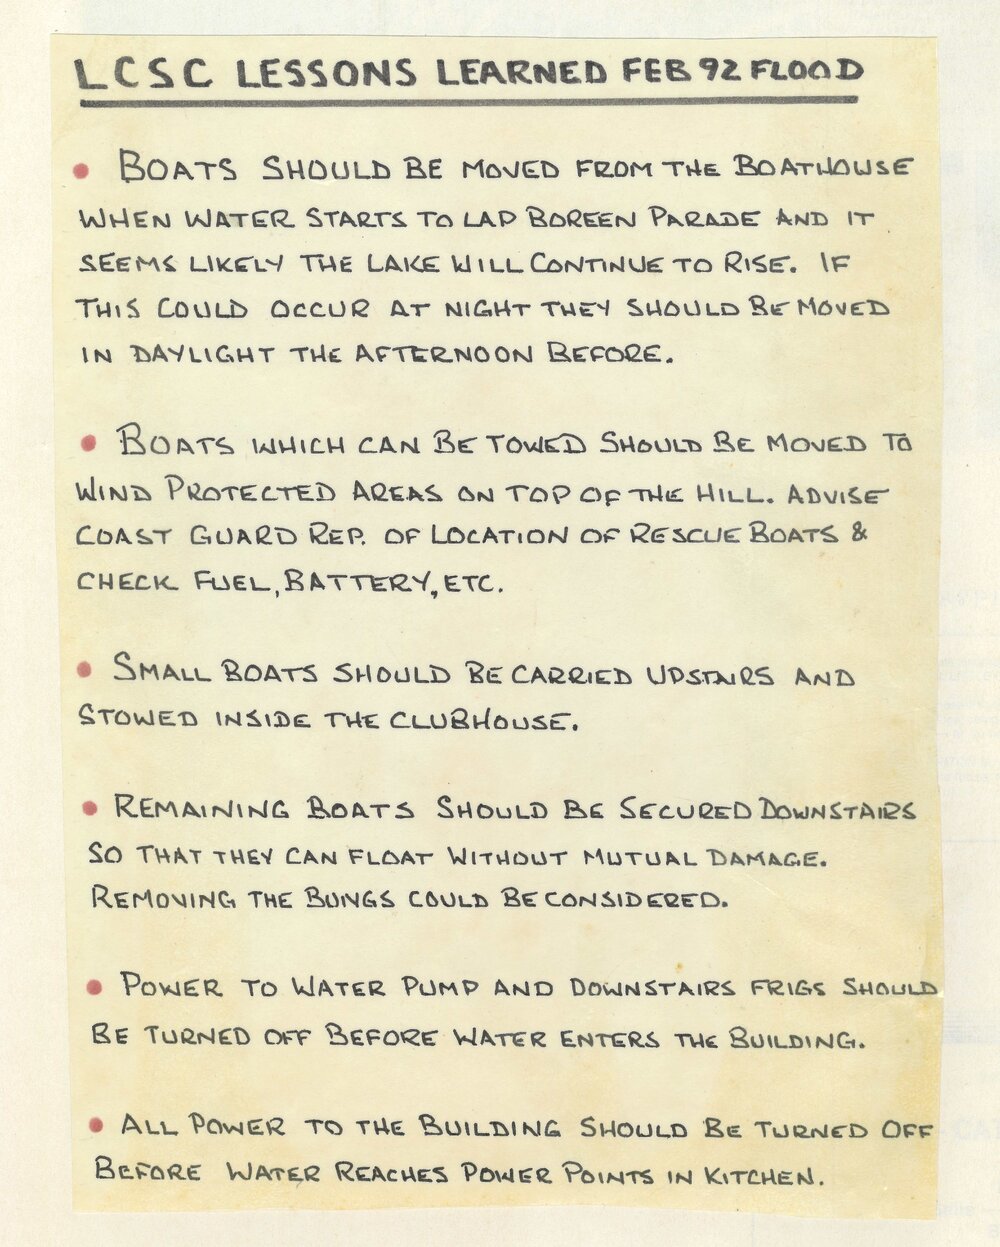 LCSC LESSONS LEARNED FEB 92 FLOOD
• BOATS SHOULD BE MOVED FROM THE BOATHOUSE
WHEN WATER STARTS TO LAP BOREEN PARADE AND IT
SEEMS LIKELY THE LAKE WILL CONTINUE TO RISE. IF
THIS COULD OCCUR AT NIGHT THEY SHOULD BE MOVED
IN DAYLIGHT THE AFTERNOON BEFORE.
• BOATS WHICH CAN BE TOWED SHOULD BE MOVED TO
WIND PROTECTED AREAS ON TOP OF THE HILL. ADVISE
COAST GUARD REP. OF LOCATION OF RESCUE BOATS &
CHECK FUEL, BATTERY, ETC.
• SMALL BOATS SHOULD BE CARRIED UPSTAIRS AND
STOWED INSIDE THE CLUBHOUSE.
• REMAINING BOATS SHOULD BE SECURED DOWNSTAIRS
SO THAT THEY CAN FLOAT WITHOUT MUTUAL DAMAGE.
REMOVING THE BUNGS COULD BE CONSIDERED.
• POWER TO WATER PUMP AND DOWNSTAIRS FRIGS SHOULD
BE TURNED OFF BEFORE WATER ENTERS THE BUILDING.
• ALL POWER TO THE BUILDING SHOULD BE TURNED OFF
BEFORE WATER REACHES POWER POINTS IN KITCHEN.